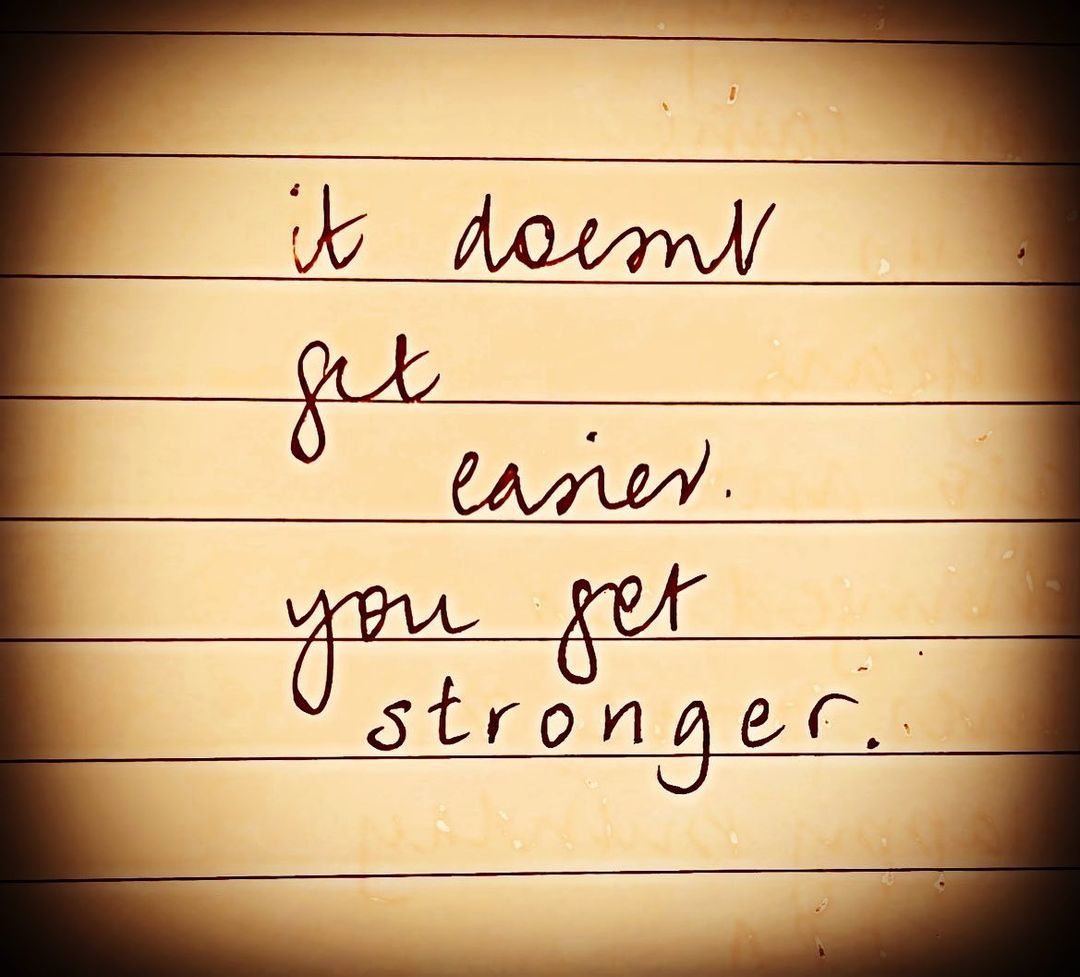 it doesnt
get
easier.
you get
stronger.